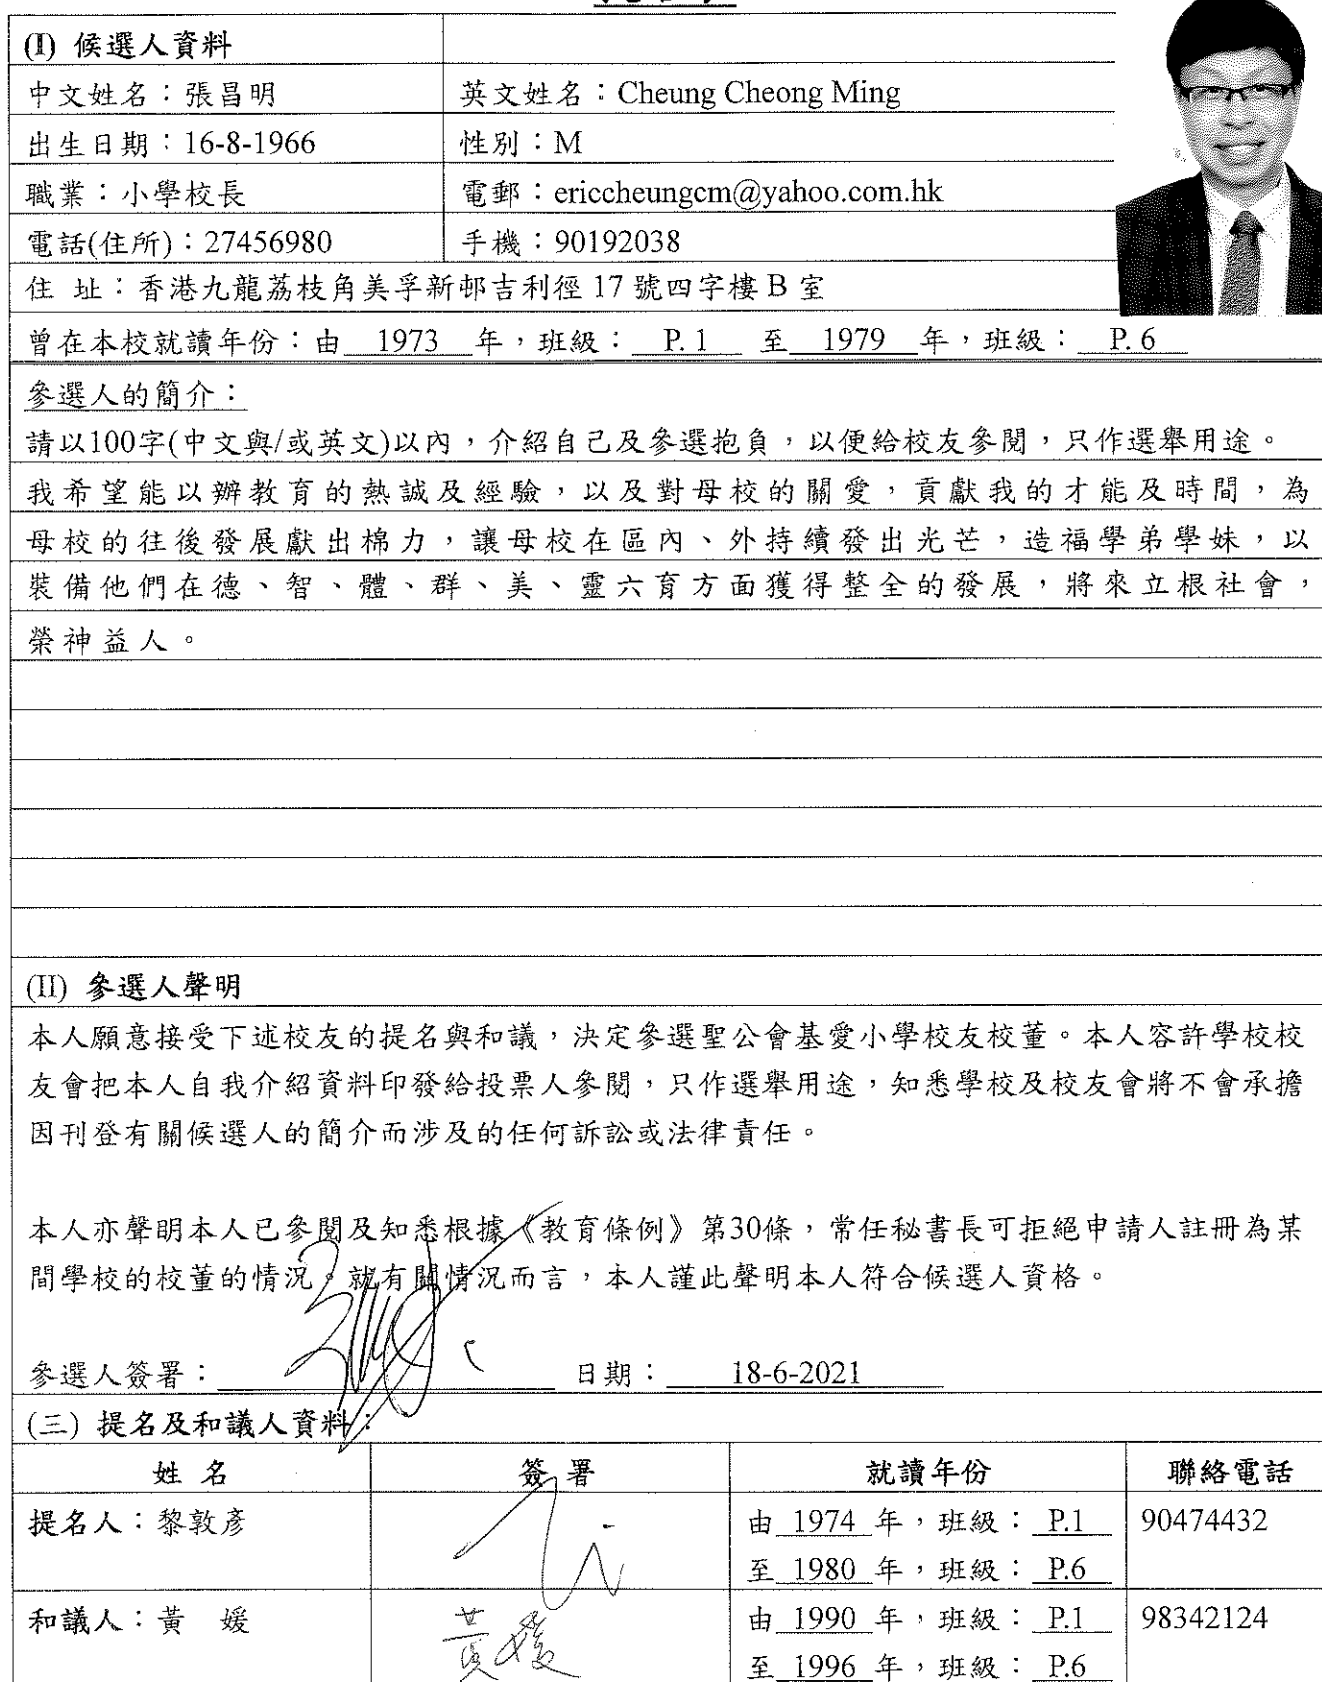 (I) 候選人資料
中文姓名：張昌明 英文姓名：Cheung Cheong Ming
出生日期：16-8-1966 性別：M
職業：小學校長 電郵：ericcheungcm@yahoo.com.hk
電話(住所)：27456980 手機：90192038
住 址：香港九龍荔枝角美孚新邨吉利徑 17 號四字樓 B 室
曾在本校就讀年份：由 1973 年，班級： P. 1 至 1979 年，班級： P. 6
參選人的簡介：
請以100字(中文與/或英文)以內，介紹自己及參選抱負，以便給校友參閱，只作選舉用途。
我希望能以辦教育的熱誠及經驗，以及對母校的關愛，貢獻我的才能及時間，為
母校的往後發展獻出棉力，讓母校在區內、外持續發出光芒，造福學弟學妹，以
裝備他們在德、智、體、群、美、靈六育方面獲得整全的發展，將來立根社會，
榮神益人。
(II) 參選人聲明
本人願意接受下述校友的提名與和議，決定參選聖公會基愛小學校友校董。本人容許學校校
友會把本人自我介紹資料印發給投票人參閱，只作選舉用途，知悉學校及校友會將不會承擔
因刊登有關候選人的簡介而涉及的任何訴訟或法律責任。
本人亦聲明本人已參閱及知悉根據《教育條例》第30條，常任秘書長可拒絕申請人註冊為某
間學校的校董的情況。就有關情況而言，本人謹此聲明本人符合候選人資格。
參選人簽署： 日期： 18-6-2021
(三) 提名及和議人資料：
姓 名 簽 署 就讀年份 聯絡電話
提名人：黎敦彥 由 1974 年，班級： P.1 90474432
至 1980 年，班級： P.6
和議人：黃 媛 黃媛 由 1990 年，班級： P.1 98342124
至 1996 年，班級： P.6